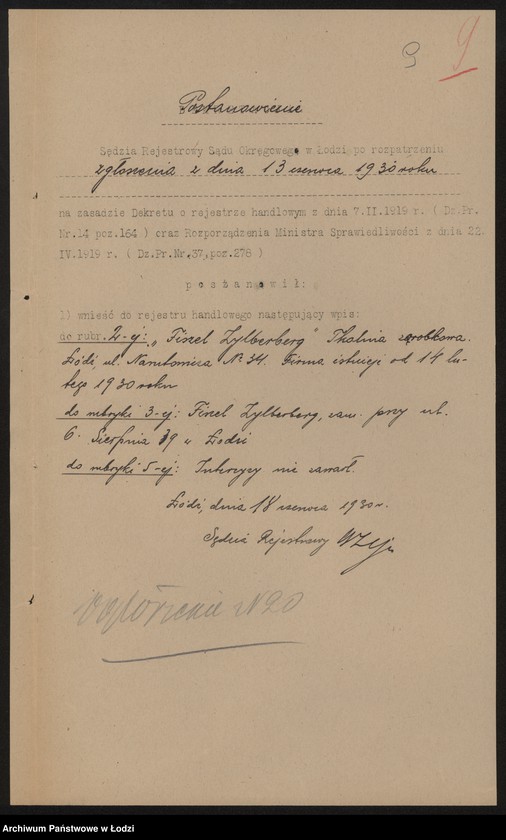 9
9
Postanowienie
Sędzia Rejestrowy Sądu Okręgowego w Łodzi po rozpatrzeniu
zgłoszenia z dnia 13 czerwca 1930 roku
na zasadzie Dekretu o rejestrze handlowym z dnia 7.II.1919 r. ( Dz.Pr.
Nr.14 poz.164 ) oraz Rozporządzenia Ministra Sprawiedliwości z dnia 22
IV.1919 r. ( Dz.Pr.Nr.37,poz.278 )
postanowił:
1) wnieść do rejestru handlowego następujący wpis:
do rubr. 2-ej: „Fiszel Zylberberg" Tkalnia zarobkowa.
Łódź, ul. Narutowicza № 34. Firma istnieje od 14 lu-
tego 1930 roku
do rubryki 3-ej: Fiszel Zylberberg, zam. przy ul.
6. Sierpnia 39 w Łodzi
do rubryki 5-ej: Intercyzy nie zawarł.
Łódź, dnia 18 czerwca 1930 r.
Sędzia Rejestrowy
Ogłoszenie N 20
Archiwum Państwowe w Łodzi